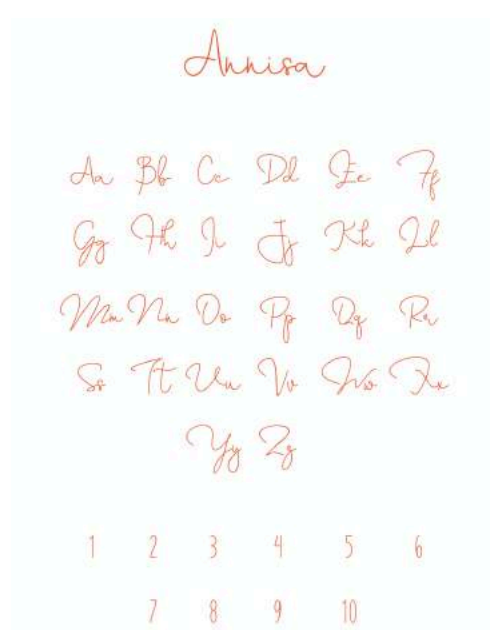 Annisa
Aa Bb Cc Dd Ee Ff
Gg Hh Ii Jj Kk Ll
Mm Nn Oo Pp Qq Rr
Ss Tt Uu Vv Ww Xx
Yy Zz
1 2 3 4 5 6
7 8 9 10